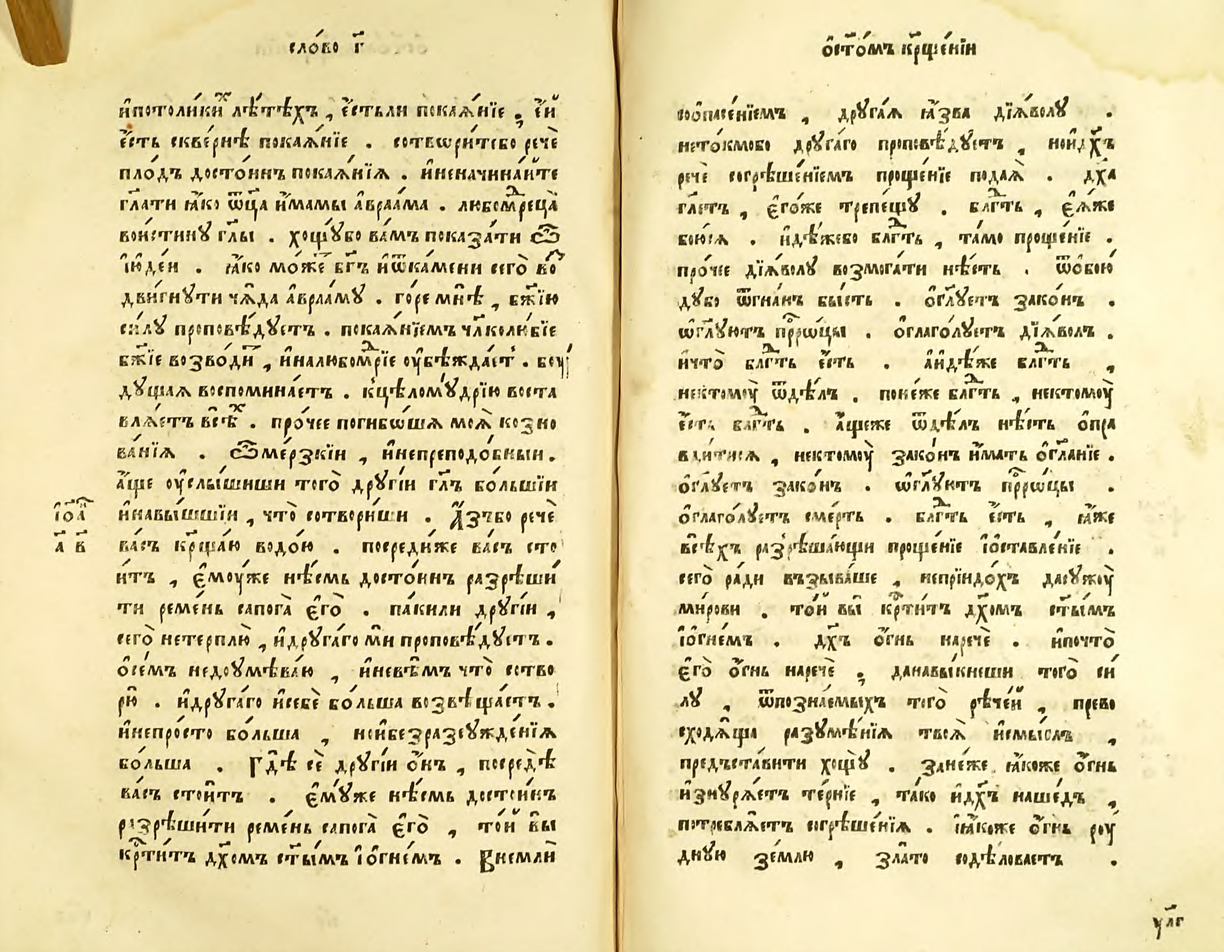 сло́во г҃
и҆потоли́ки лѣ́тѣхъ , є҆́стьли покаѧ́нїе , є҆́й
є҆́сть сквє́рнѣ покаѧ́нїе . сотвори́тебо речѐ
пло́дъ досто́инъ покаѧ́нїѧ . и҆неначина́ите
гл҃ати ꙗ҆́ко ѿц҃а и҆́мамы а҆враа́ма . любомⷣреца̀
вои́стину гл҃ы . хощу́бо ва́мъ показа́ти ѿ
і҆юде́и . ꙗ҆́ко мо́же бг҃ъ и҆ѿка́мени сего̀ во
дви́гнути чѧ́да а҆враа́му . го́ре мнѣ̀ , бж҃їю
си́лу проповѣ́дуетъ . покаѧ́нїемъ чл҃колю́бїе
бж҃їе возво́ди , и҆налюбомⷣрїе оу҆бѣжда́ет . боу
ду́щаѧ воспомина́етъ . кцѣлому́дрїю воста
влѧ́етъ всѣⷯ . про́чее поги́бошѧ моѧ̀ козно
ва́нїѧ . ѿме́рзкїи , и҆непреподо́бныи .
а҆́ще оу҆слы́шиши того̀ дру́гїи гл҃ъ бо́льшїи
и҆навы́шшїи , что̀ сотвори́ши . А҆́зъбо речѐ
ва́съ кр҃ща́ю водо́ю . посреди́же ва́съ сто
и́тъ , є҆моу́же нѣ́смь досто́инъ разрѣши́
ти реме́нь сапога̀ є҆го̀ . па́кили дру́гїи ,
сего̀ нетерплю̀ , и҆друга́го ми проповѣ́дуетъ .
ѻ҆се́мъ недоумѣва́ю , и҆невѣ́мъ что̀ сотво
рю̀ . и҆друга́го и҆себѐ бо́льша возвѣща́етъ .
и҆непро́сто бо́льша , нои҆безразсужде́нїѧ
бо́льша . Гдѣ̀ сѐ дру́гїи ѻ҆́нъ , посредѣ̀
ва́съ стои́тъ . є҆му́же нѣ́смь досто́инъ
разрѣши́ти реме́нь сапога̀ є҆го̀ , то́й вы̀
кр҃ти́тъ дх҃омъ ст҃ы́мъ і҆ѻ҆гне́мъ . Внемлѝ
і҆ѻа҃
а҃ в҃
ѻ҆ст҃о́мъ кр҃ще́нїи
соѻпасе́нїемъ , друга́ѧ ꙗ҆́зва дїѧ́волу .
нето́кмобо друга́го проповѣ́дуетъ , нои҆дх҃ъ
речѐ согрѣше́нїемъ проще́нїе пода́ѧ . дх҃а
гл҃етъ , є҆го́же трепещу̀ . блгⷣть , є҆ѧ́же
бою́сѧ . и҆дѣ́жебо блгⷣть , та́мо проще́нїе .
про́чее дїѧ́волу возмога́ти нѣ́сть . ѿѻ҆бою́
ду́бо ѿгна́нъ бы́сть . ѻ҆гл҃у́етъ зако́нъ .
ѡ҆гл҃у́ютъ прⷪ҇ро́цы . ѻ҆глаго́луетъ дїѧ́волъ .
и҆что̀ блгⷣть є҆́сть . а҆и҆дѣ́же блгⷣть ,
нектомоу̀ ѿдѣ́лъ . поне́же блгⷣть , нектомоу̀
є҆́сть блгⷣть . а҆́щеже ѿдѣ́лъ нѣ́сть ѻ҆пра
вди́тисѧ , нектомоу̀ зако́нъ и҆́мать ѻ҆гл҃а́нїе .
ѻ҆гл҃у́етъ зако́нъ . ѡ҆гл҃у́ютъ прⷪ҇ро́цы .
ѻ҆глаго́луетъ сме́рть . блгⷣть є҆́сть , ꙗ҆́же
всѣ́хъ разрѣша́ющи проще́нїе і҆ѻ҆ставле́нїе .
сего̀ ра́ди възыва́ше , непрїидо́хъ дасужоу̀
ми́рови . то́й вы̀ кр҃ти́тъ дх҃омъ ст҃ы́мъ
і҆ѻ҆гне́мъ . дх҃ъ ѻ҆́гнь нарече́ . и҆почто̀
є҆го̀ ѻ҆́гнь нарече́ , данавы́кнеши того̀ си́
лу , ѿпознава́емыхъ того̀ рѣ́чей , прево
сходѧ́ща разумѣ́нїѧ твоѧ̀ и҆мы́слъ ,
предъста́вити хощу̀ . зане́же ꙗ҆́коже ѻ҆́гнь
и҆знурѧ́етъ те́рнїе , та́ко и҆дх҃ъ наше́дъ ,
потреблѧ́етъ согрѣше́нїѧ . і҆ꙗ҆́коже ѻ҆́гнь роу́
дную зе́млю , зла́то содѣ́ловаетъ .
улг